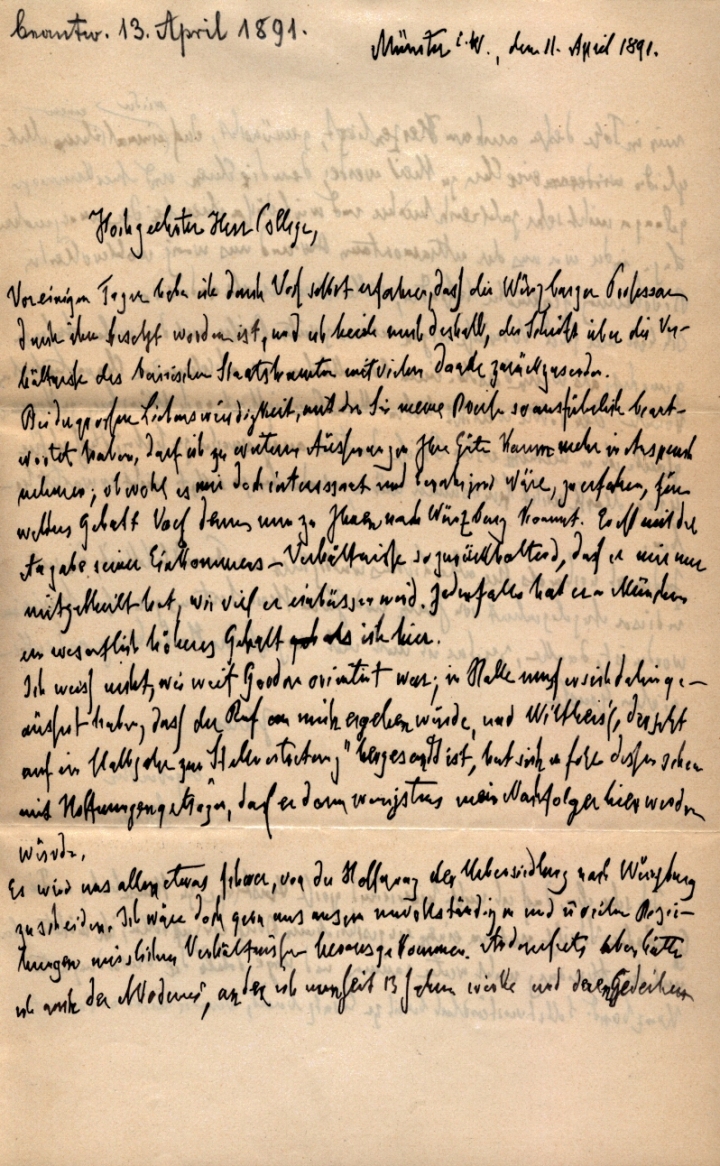 beantw. 13. April 1891.
Münster i. W., den 11. April 1891.
Hochgeehrter Herr College,
Vor einigen Tagen habe ich durch Voß selbst erfahren, daß die Würzburger Professur
durch ihn besetzt worden ist, und ich beeile mich deshalb, die Schrift über die Ver-
hältnisse des bairischen Staatsbeamten mit vielem Danke zurückzusenden.
Bei der grossen Liebenswürdigkeit, mit der Sie meine Briefe so ausführlich beant-
wortet haben, darf ich zu weiteren Äusserungen Ihre Güte kaum mehr in Anspruch
nehmen; obwohl es mir doch interessant und wäre, zu erfahren, für
welches Gehalt Voß denn nun zu Ihnen nach Würzburg kommt. Er ist mit der
Angabe seiner Einkommens-Verhältnisse so zurückhaltend, daß er mir nur
mitgetheilt hat, wie viel er einbüssen wird. Jedenfalls hat er in München
ein wesentlich höheres Gehalt als ich hier.
Ich weiß nicht, wie weit Gordan orientirt war; in Halle muß er sich dahin ge-
äussert haben, daß der Ruf an mich ergehen würde, und Wiltheiss, der jetzt
auf ein Halbjahr zur "Stellvertretung" hergesandt ist, hat sich in Folge dessen schon
mit Hoffnungen getragen, daß er dann wenigstens mein Nachfolger hier werden
würde.
Es wird uns allen etwas schwer, von der Hoffnung der Uebersiedlung nach Würzburg
zu scheiden. Ich wäre doch gern aus unsern unvollständigen und in vielen Bezie-
hungen misslichen Verhältnissen herausgekommen. Andrerseits aber hätte
ich auch der Akademie, an der ich nun seit 13 Jahren wirke und deren Gedeihen